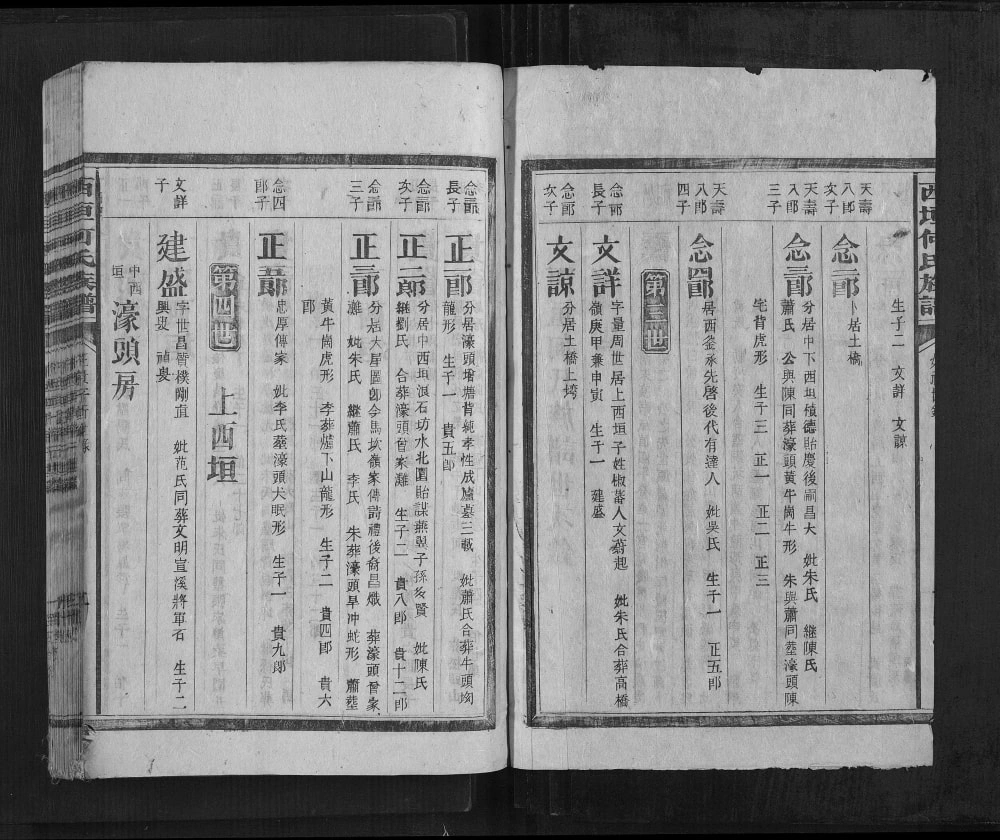 西垣何氏族譜
生子二 文詳 文諒
天壽八郎次子
念二郎 卜居土橋
天壽八郎三子
念三郎 分居中下西垣積德貽慶後嗣昌大 妣朱氏 繼陳氏
蕭氏 公與陳同葬濠頭黃牛崗牛形 朱與蕭同塟濠頭陳
宅背虎形 生子三 正一 正二 正三
天壽八郎四子
念四郎 居西 承先啓後代有達人 妣吳氏 生子一 正五郎
第三世
念一郎長子
文詳 字量周世居上西垣子姓椒蕃人文蔚起 妣朱氏合葬高橋
嶺庚甲兼申寅 生子一 建盛
念一郎次子
文諒 分居土橋上塆
念三郎長子
正一郎 分居濠頭增塘背純孝性成廬墓三載 妣蕭氏合葬牛頭坳
龍形 生子一 貴五郎
念三郎次子
正二郎 分居中西垣浪石坊水北圍貽謀燕翼子孫多賢 妣陳氏
繼劉氏 合葬濠頭曾家灘 生子二 貴八郎 貴十二郎
念三郎三子
正三郎 分居大星圖卽金馬坎嶺家傳詩禮後裔昌熾 葬濠頭曾家
灘 妣朱氏 繼蕭氏 李氏 朱葬濠頭旱冲蛇形 蕭塟
黃牛崗虎形 李葬爐下山龍形 生子二 貴四郎 貴六
郎
念四郎子
正五郎 忠厚傳家 妣李氏葬濠頭犬眠形 生子一 貴九郎
第四世 上西垣
文詳子
建盛 字世昌質樸剛直 妣范氏同葬文明宣溪將軍石 生子二
興叟 禎叟
中西垣 濠頭房
西垣何氏族譜